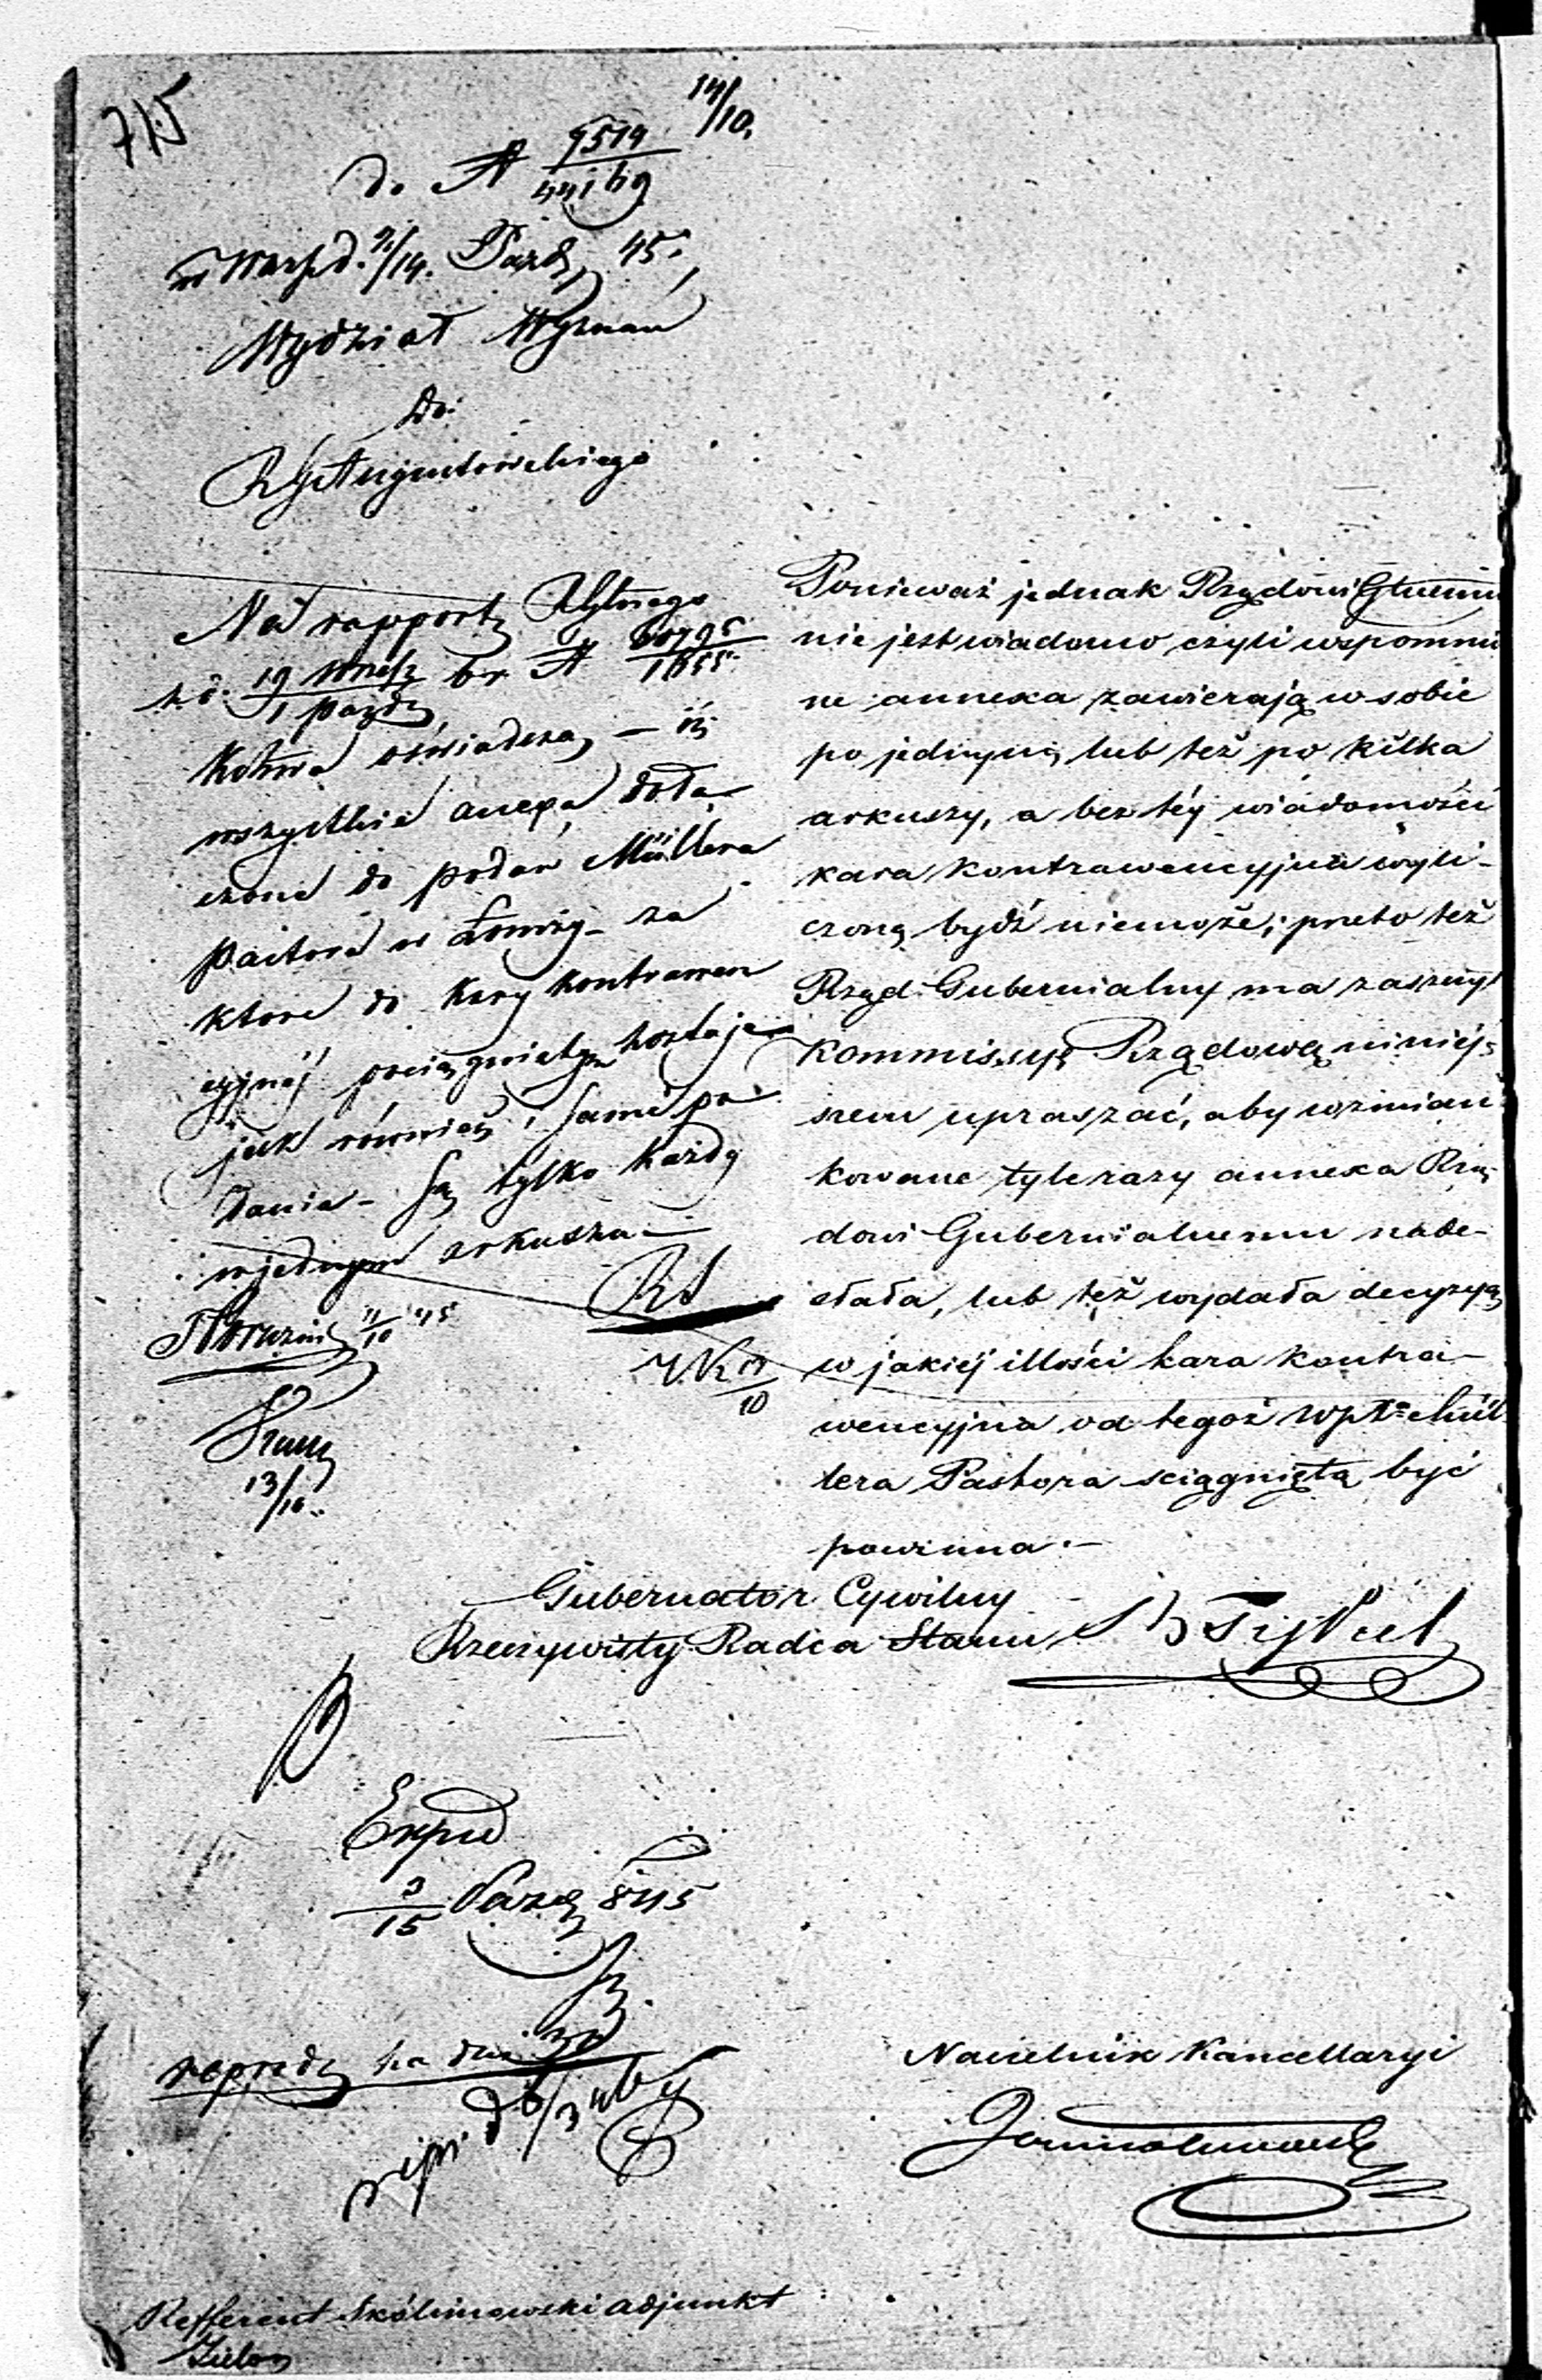 715
14/10
do N 9514
w Warsz d. 2/14. Paźdz 45.
Wydział Wyznań
do
RGAugustowskiego
Na rapport RGlnego
z d. 19 Wrześ / 1 Paźdz br. N
Komra oświadcza, – iż
wszystkie anexa dołą-
czone do podań Müllera
pastora w Łomży – za
które do kary kontrawen
cyjnéj pociągnięty zostaje
jak również i same po
dania – są tylko każdy
w jednym arkuszu –
11/10 45
13/10
Ponieważ jednak Rządowi Glnemu
nie jest wiadomo czyli wspomnio
ne annexa zawierają w sobie
po jednym, lub też po kilka
arkuszy, a bez téj wiadomości
kara kontrawencyjna wyli-
czoną bydź niemoże; przeto też
Rząd Gubernialny ma zaszczyt
Kommissyą Rządową niniéj-
szem upraszać, aby wzmian-
kowane tylerazy annexa Rzą-
dowi Gubernialnemu nade-
słała, lub też wydała decyzyą
w jakiéj illości kara kontra-
wencyjna od tegoż Mül
lera Pastora sciągniętą być
powinna. –
Gubernator Cywilny
Rzeczywisty Radca Stanu
Expd
3/15 Paźdz 845
na dni 30
Naczelnik Kancellaryi
Refferent Skólimowski adjunkt